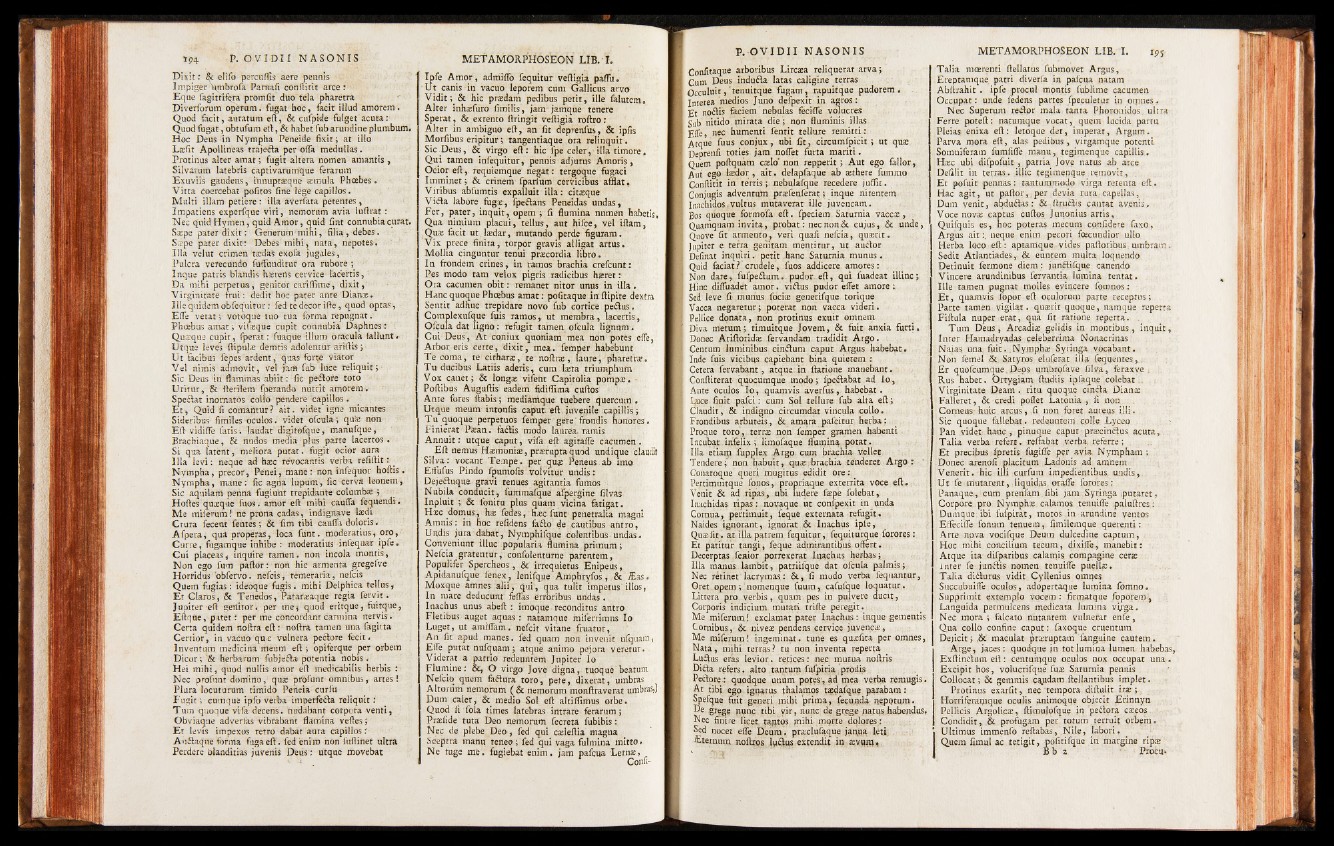 194 P. OVIDII NASONIS
Dixit: & eliso percussis aere pennis
Impiger umbrosa Parnasi constitit arce:
Eque sagittifera promsit duo tela pharetra
Diversorum operum. fugat hoc, facit illud amorem.
Quod facit, auratum est, & cuspide fulget acuta:
Quod fugat, obtusum est, & habet sub arundine plumbum.
Hoc Deus in Nympha Peneide fixit; at illo
Læsit Apollineas trajecta per ossa medullas.
Protinus alter amat; fugit altera nomen amantis,
Silvarum latebris captivarumque ferarum
Exuviis gaudens, innuptæque æmula Phœbes.
Vitta coercebat positos sine lege capillos.
Multi illam petiere: illa aversata petentes,
Impatiens expersque viri, nemorum avia lustrat:
Nec quid Hymen, quid Amor, quid sint connubia curat.
Sæpe pater dixit: Generum mihi, filia, debes.
Sæpe pater dixit: Debes mihi, nata, nepotes.
Illa velut crimen tædas exosa jugales,
Pulcra verecundo suffunditur ora rubore;
Inque patris blandis hærens cervice lacertis,
Da mihi perpetua, genitor carissime, dixit,
Virginitate frui: dedit hoc pater ante Dianæ.
Ille quidem obsequitur: sed te decor iste, quod optas,
Esse vetat; votoque tuo tua forma repugnat.
Phœbus amat; visæque cupit connubia Daphnes:
Quæque cupit, sperat: suaque illum oracula fallunt.
Utque leves stipulæ demtis adolentur aristis;
Ut facibus sepes ardent, quas forte viator
Vel nimis admovit, vel jam sub luce reliquit;
Sic Deus in flammas abiit: sic pectore toto
Uritur, & sterilem sperando nutrit amorem.
Spectat inornatos collo pendere capillos.
Et, Quid si comantur? ait. videt igne micantes
Sideribus similes oculos. videt oscula; quæ non
Est vidisse satis. laudat digitosque, manusque,
Brachiaque, & nudos media plus parte lacertos.
Si qua latent, meliora putat. fugit ocior aura
Illa levi: neque ad hæc revocantis verba resistit:
Nympha, precor, Penei, mane: non insequor hostis.
Nympha, mane: sic agna lupum, sic cerva leonem,
Sic aquilam penna fugiunt trepidante columbæ;
Hostes quæque suos. amor est mihi caussa sequendi.
Me miserum! ne prona cadas, indignave lædi
Crura secent sentes; & sim tibi caussa doloris.
Aspera, qua properas, loca sunt. moderatius, oro,
Curre, fugamque inhibe: moderatius insequar ipse.
Cui placeas, inquire tamen. non incola montis,
Non ego sum pastor: non hic armenta gregesve
Horridus observo. nescis, temeraria, nescis
Quem fugias: ideoque fugis. mihi Delphica tellus,
Et Claros, & Tenedos, Pataræaque regia servit.
Jupiter est genitor. per me, quod eritque, fuitque,
Estque, patet: per me concordant carmina nervis.
Certa quidem nostra est: nostra tamen una sagitta
Certior, in vacuo quæ vulnera pectore fecit.
Inventum medicina meum est; opiferque per orbem
Dicor: & herbarum subjecta potentia nobis.
Hei mihi, quod nullis amor est medicabilis herbis:
Nec prosunt domino, quæ prosunt omnibus, artes!
Plura locuturum timido Peneia cursu
Fugit: cumque ipso verba imperfecta reliquit:
Tum quoque visa decens. nudabant corpora venti,
Obviaque adversas vibrabant flamina vestes;
Et levis impexos retro dabat aura capillos:
Auctaque forma fuga est. sed enim non sustinet ultra
Perdere blanditias juvenis Deus: utque movebat
METAMORPHOSEON LIB. I.
Ipse Amor, admisso sequitur vestigia passu.
Ut canis in vacuo leporem cum Gallicus arvo
Vidit; & hic prædam pedibus petit, ille salutem.
Alter inhæsuro similis, jam jamque tenere
Sperat, & extento stringit vestigia rostro:
Alter in ambiguo est, an sit deprensus, & ipsis
Morsibus eripitur; tangentiaque ora relinquit.
Sic Deus, & virgo est: hic spe celer, illa timore.
Qui tamen insequitur, pennis adjutus Amoris,
Ocior est, requiemque negat: tergoque fugaci
Imminet; & crinem sparsum cervicibus afflat.
Viribus absumtis expalluit illa: citæque
Victa labore fugæ, spectans Peneidas undas,
Fer, pater, inquit, opem; si flumina numen habetis,
Qua nimium placui, tellus, aut hisce, vel istam,
Quæ facit ut lædar, mutando perde figuram.
Vix prece finita, torpor gravis alligat artus.
Mollia cinguntur tenui præcordia libro.
In frondem crines, in ramos brachia crescunt:
Pes modo tam velox pigris radicibus hæret:
Ora cacumen obit: remanet nitor unus in illa.
Hanc quoque Phœbus amat: positaque in stipite dextra
Sentit adhuc trepidare novo sub cortice pectus.
Complexusque suis ramos, ut membra, lacertis,
Oscula dat ligno: refugit tamen oscula lignum.
Cui Deus, At conjux quoniam mea non potes esse,
Arbor eris certe, dixit, mea. semper habebunt
Te coma, te citharæ, te nostræ, laure, pharetræ.
Tu ducibus Latiis aderis, cum læta triumphum
Vox canet; & longæ visent Capitolia pompæ.
Postibus Augustis eadem fidissima custos
Ante fores stabis; mediamque tuebere quercum.
Utque meum intonsis caput est juvenile capillis;
Tu quoque perpetuos semper gere frondis honores.
Finierat Pæan. factis modo laurea ramis
Annuit: utque caput, visa est agitasse cacumen.
Est nemus Hæmoniæ, prærupta quod undique claudit
Silva: vocant Tempe. per quæ Peneus ab imo
Effusus Pindo spumosis volvitur undis:
Dejectuque gravi tenues agitantia fumos
Nubila conducit, summasque aspergine silvas
Inpluit: & sonitu plus quam vicina fatigat.
Hæc domus, hæ sedes, hæc sunt penetralia magni
Amnis: in hoc residens facto de cautibus antro,
Undis jura dabat, Nymphisque colentibus undas.
Conveniunt illuc popularia flumina primum;
Nescia gratentur, consolenturne parentem,
Populifer Spercheos, & irrequietus Enipeus,
Apidanusque senex, lenisque Amphrysos, & Æas.
Moxque amnes alii, qui, qua tulit impetus illos,
In mare deducunt fessas erroribus undas.
Inachus unus abest: imoque reconditus antro
Fletibus auget aquas: natamque miserrimus Io
Luget, ut amissam. nescit vitane fruatur,
An sit apud manes. sed quam non invenit usquam,
Esse putat nusquam; atque animo pejora veretur.
Viderat a patrio redeuntem Jupiter Io
Flumine: &, O virgo Jove digna, tuoque beatum
Nescio quem factura toro, pete, dixerat, umbras
Altorum nemorum (& nemorum monstraverat umbras)
Dum calet, & medio Sol est altissimus orbe.
Quod si sola times latebras intrare ferarum;
Præside tuta Deo nemorum secreta subibis:
Nec de plebe Deo, sed qui cælestia magna
Sceptra manu teneo; sed qui vaga fulmina mitto.
Ne fuge me. fugiebat enim. jam pascua Lernæ,
Consi-
P. OVIDII NASONIS
Consitaque arboribus Lircæa reliquerat arva;
Cum Deus inducta latas caligine terras
Occuluit, tenuitque fugam, rapuitque pudorem.
Interea medios Juno despexit in agros:
Et noctis faciem nebulas fecisse volucres
Sub nitido mirata die; non fluminis illas
Esse, nec humenti sentit tellure remitti:
Atque suus conjux, ubi sit, circumspicit; ut quæ
Deprensi toties jam nosset furta mariti.
Quem postquam cælo non repperit; Aut ego fallor,
Aut ego lædor, ait. delapsaque ab æthere summo
Constitit in terris; nebulasque recedere jussit.
Conjugis adventum præsenserat; inque nitentem
Inachidos vultus mutaverat ille juvencam.
Bos quoque formosa est. speciem Saturnia vaccæ,
Quamquam invita, probat: nec non & cujus, & unde,
Quove sit armento, veri quasi nescia, quærit.
Jupiter e terra genitam mentitur, ut auctor
Desinat inquiri. petit hanc Saturnia munus.
Quid faciat? crudele, suos addicere amores:
Non dare, suspectum. pudor est, qui suadeat illinc;
Hinc dissuadet amor. victus pudor esset amore:
Sed leve si munus sociæ generisque torique
Vacca negaretur; poterat non vacca videri.
Pellice donata, non protinus exuit omnem
Diva metum; timuitque Jovem, & fuit anxia furti.
Donec Arestoridæ servandam tradidit Argo.
Centum luminibus cinctum caput Argus habebat.
Inde suis vicibus capiebant bina quietem:
Cetera servabant, atque in statione manebant.
Constiterat quocumque modo; spectabat ad Io,
Ante oculos Io, quamvis aversus, habebat.
Luce sinit pasci: cum Sol tellure sub alta est;
Claudit, & indigno circumdat vincula collo.
Frondibus arbuteis, & amara pascitur herba;
Proque toro, terræ non semper gramen habenti
Incubat infelix; limosaque flumina potat.
Illa etiam supplex Argo cum brachia vellet
Tendere; non habuit, quæ brachia tenderet Argo:
Conatoque queri mugitus edidit ore:
Pertimuitque sonos, propriaque exterrita voce est.
Venit & ad ripas, ubi ludere sæpe solebat,
Inachidas ripas: novaque ut conspexit in unda
Cornua, pertimuit, seque externata refugit.
Naides ignorant, ignorat & Inachus ipse,
Quæ sit. at illa patrem sequitur, sequiturque sorores:
Et patitur tangi, seque admirantibus offert.
Decerptas senior porrexerat Inachus herbas;
Illa manus lambit, patriisque dat oscula palmis;
Nec retinet lacrymas: &, si modo verba sequantur,
Oret opem; nomenque suum, casusque loquatur.
Littera pro verbis, quam pes in pulvere ducit,
Corporis indicium mutati triste peregit.
Me miserum! exclamat pater Inachus: inque gementis
Cornibus, & niveæ pendens cervice juvencæ,
Me miserum! ingeminat. tune es quæsita per omnes,
Nata, mihi terras? tu non inventa reperta
Luctus eras levior. retices: nec mutua nostris
Dicta refers. alto tantum suspiria prodis
Pectore: quodque unum potes, ad mea verba remugis.
At tibi ego ignarus thalamos tædasque parabam:
Spesque fuit generi mihi prima, secunda nepotum.
De grege nunc tibi vir, nunc de grege natus habendus.
Nec finire licet tantos mihi morte dolores:
Sed nocet esse Deum, præclusaque janua leti
Æternum nostros luctus extendit in ævum.
METAMORPHOSEON LIB. I. 195
Talia mœrenti stellatus submovet Argus,
Ereptamque patri diversa in pascua natam
Abstrahit. ipse procul montis sublime cacumen
Occupat: unde sedens partes speculetur in omnes.
Nec Superum rector mala tanta Phoronidos ultra
Ferre potest: natumque vocat, quem lucida partu
Pleias enixa est: letoque det, imperat, Argum.
Parva mora est, alas pedibus, virgamque potenti
Somniferam sumsisse manu, tegimenque capillis.
Hæc ubi disposuit, patria Jove natus ab arce
Desilit in terras. illic tegimenque removit,
Et posuit pennas: tantummodo virga retenta est.
Hac agit, ut pastor, per devia rura capellas,
Dum venit, abductas: & structis cantat avenis.
Voce novæ captus custos Junonius artis,
Quisquis es, hoc poteras mecum considere saxo,
Argus ait: neque enim pecori fœcundior ullo
Herba loco est: aptamque vides pastoribus umbram.
Sedit Atlantiades, & euntem multa loquendo
Detinuit sermone diem: junctisque canendo
Vincere arundinibus servantia lumina tentat.
Ille tamen pugnat molles evincere somnos:
Et, quamvis sopor est oculorum parte receptus;
Parte tamen vigilat. quærit quoque, namque reperta
Fistula nuper erat, qua sit ratione reperta.
Tum Deus, Arcadiæ gelidis in montibus, inquit,
Inter Hamadryadas celeberrima Nonacrinas
Naias una fuit. Nymphæ Syringa vocabant.
Non semel & Satyros eluserat illa sequentes,
Et quoscumque Deos umbrosave silva, feraxve
Rus habet. Ortygiam studiis ipsaque colebat
Virginitate Deam. ritu quoque cincta Dianæ
Falleret, & credi posset Latonia, si non
Corneus huic arcus, si non foret aureus illi.
Sic quoque fallebat. redeuntem colle Lycæo
Pan videt hanc, pinuque caput præcinctus acuta,
Talia verba refert. restabat verba referre;
Et precibus spretis fugisse per avia Nympham:
Donec arenosi placitum Ladonis ad amnem
Venerit. hic illi cursum impedientibus undis,
Ut se mutarent, liquidas orasse sorores:
Panaque, cum prensam sibi jam Syringa putaret,
Corpore pro Nymphæ calamos tenuisse palustres:
Dumque ibi suspirat, motos in arundine ventos
Effecisse sonum tenuem, similemque querenti:
Arte nova vocisque Deum dulcedine captum,
Hoc mihi concilium tecum, dixisse, manebit:
Atque ita disparibus calamis compagine ceræ
Inter se junctis nomen tenuisse puellæ.
Talia dicturus vidit Cyllenius omnes
Succubuisse oculos, adopertaque lumina somno.
Supprimit extemplo vocem: firmatque soporem,
Languida permulcens medicata lumina virga.
Nec mora; falcato nutantem vulnerat ense,
Qua collo confine caput: saxoque cruentum
Dejicit; & maculat præruptam sanguine cautem.
Arge, jaces: quodque in tot lumina lumen habebas,
Exstinctum est: centumque oculos nox occupat una.
Excipit hos, volucrisque suæ Saturnia pennis
Collocat: & gemmis caudam stellantibus implet.
Protinus exarsit, nec tempora distulit iræ;
Horriferamque oculis animoque objecit Erinnyn
Pellicis Argolicæ, stimulosque in pectora cæcos
Condidit, & profugam per totum terruit orbem.
Ultimus immenso restabas, Nile, labori.
Quem simul ac tetigit, positisque in margine ripæ
B b 2 Procu-